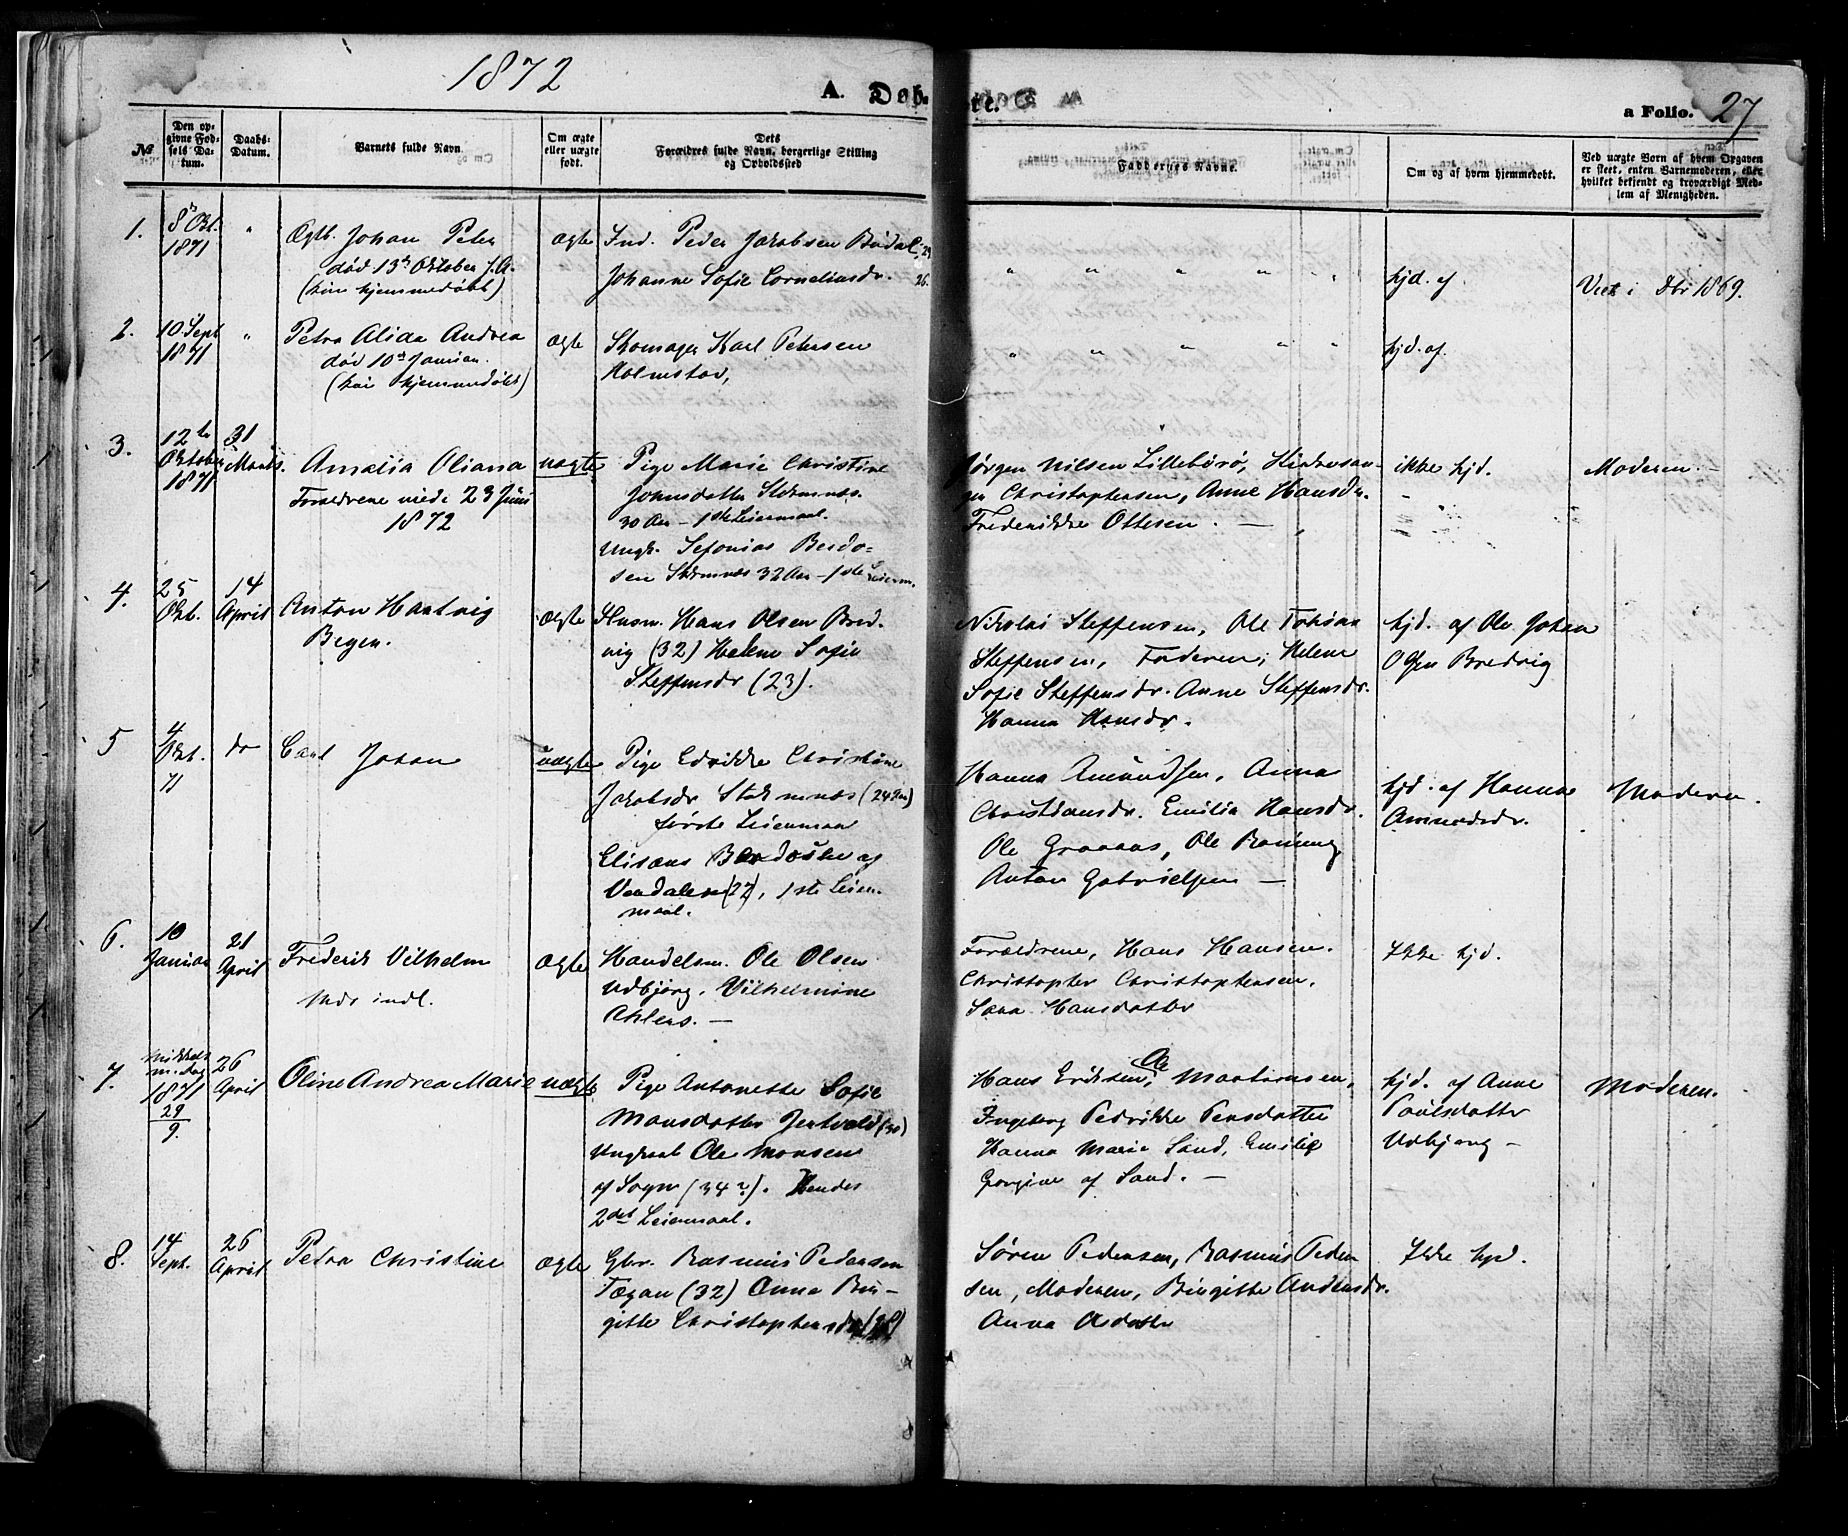 1872
A. Døbte.
a Folio. 27
№
Den opgivne Fødsels Datum.
Daabs-Datum.
Barnets fulde Navn
Om ægte eller uægte født.
Dets Forældres fulde Navn, borgerlige Stilling og Opholdssted
Faddernes Navne.
Om og af hvem hjemmedøbt.
Ved uægte Børn af hvem Opgaven er skeet, enten Barnemoderen, eller hvilket bekjendt og troværdigt Medlem af Menigheden.
1.
8de Okt.
1871
"
Ægtb. Johan Peter
død 13de Oktober f.A.
(kun hjemmedøbt)
Ægte
Ind. Peder Jakobsen Budal 29
Johanne Sofie Corneliusdr. 26.
" " " " " "
hjd. af
Viet i Dbr 1869.
2.
10 Sept
1871
"
Petra Alida Andrea
død 10de Januar.
(kun hjemmedøbt)
Ægte
Skomager Karl Petersen
Holmstad,
" " " " "
hjd. af
3.
12te
Oktober
1871
31
Marts.
Amalia Oliana
Forældrene viede 23 Juni
1872
uægte
Pige Marie Christine
Johnsdatter Stokmnæs.
30 Aar – 1ste Leiermaal.
Ungk. Sefanias Berdo-
sen Stokmnæs 32 Aar – 1ste Leierm.
Jørgen Nilsen Lillebørø,
Christophersen, Anne Hansdr.
Frederikke Ottesen. —
ikke hjd.
–
Moderen. –
4.
25
Okt.
14
April
Anton Hartvig
Bergen.
Ægte
Husm. Hans Olsen Bred-
vig (32) Helene Sofie
Steffensdr (23).
Nikolai Steffensen, Ole Johan
Steffensen, Faderen; Helene
Sofie Steffensdr. Anne Steffensdr.
Hanna Hansdr.
hjd. af Ole Johan
Olsen Bredvig
5
4
Okt.
71
do
Carl Johan
uægte
Pige Edvikke Christine
Jakobsdr Stokmnæs (24 Aar)
første Leiermaal
Elisæus Berdosen af
Vendalen (27), 1ste Leier-
maal.
Hanna Amundsen, Anna
Christiansdr. Emilia Hansdr.
Ole Graaaas, Ole Rønning
Anton Gabrielsen —
hjd. af Hanna
Amundsdr.
Moderen.
6.
10
Januar
21
April
Frederik Vilhelm
indl.
Ægte
Handelsm. Ole Olsen
Udbjørg. Vilhelmine
Ahlers. —
Forældrene, Hans Hansen.
Christopher Christophersen,
Sara Hansdatter
Ikke hjd.
7.
Mikkels
m.dag
1871
29
9.
26
April
Oline Andrea Marie
uægte
Pige Antonette Sofie
Monsdatter Jertvold (30)
Ungkarl Ole Monsen
af Sogn (34?). Hendes
2det Leiermaal.
Hans Eriksen, Ole Martinusen,
Ingeborg Pedrikke Persdatter
Hanna Maria Sand, Emilie
Gorgine af Sand. —
hjd. af Anne
Paulsdatter
Udbjørg –
Moderen.
8.
14
Sept.
26
April
Petra Christine
Ægte
Gbr. Rasmus Pedersen
Tægan (32) Anna Bir-
gitte Christophersdr
Søren Pedersen, Rasmus Peder
sen, Moderen, Birgitte Andersdr.
Anna Olsdatter
Ikke hjd.